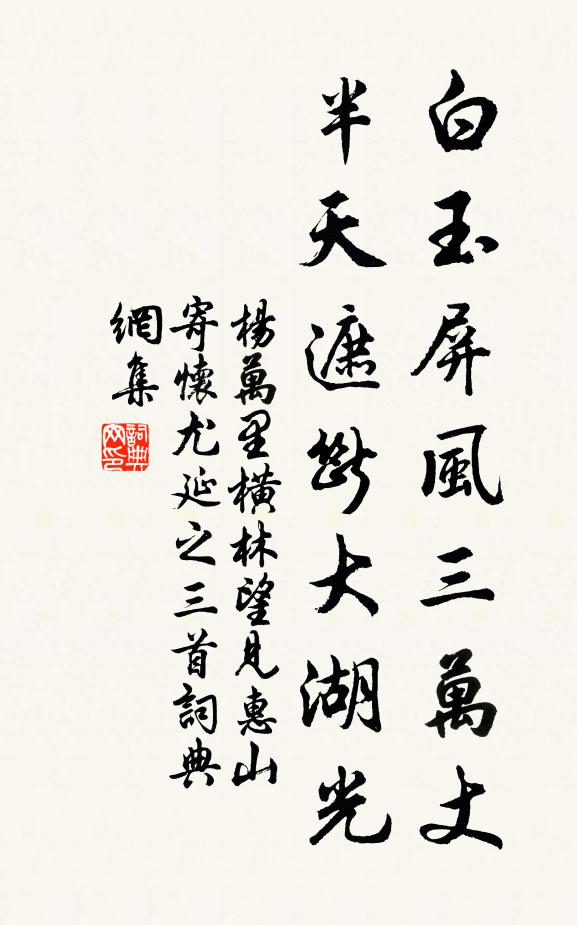 白玉屏風三萬丈
半天遮斷大湖光
楊萬里橫林望見惠山
寄懷尤延之三首詞典
網集
詞典
网印